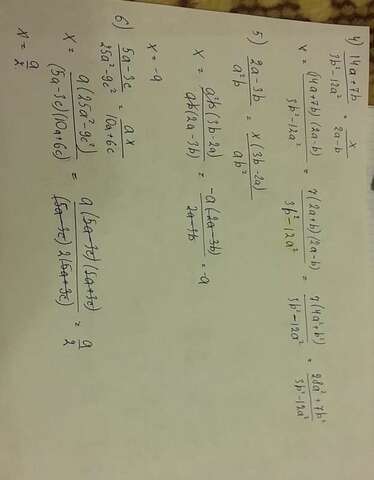 4) (14a+7b)/(3b²-12a²) = x/(2a-b)
x = ((14a+7b)(2a-b))/(3b²-12a²) = (7(2a+b)(2a-b))/(3b²-12a²) = (7(4a²+b²))/(3b²-12a²) = (28a²+7b²)/(3b²-12a²)
5) (2a-3b)/(a²b) = (x(3b-2a))/(ab²)
x = (a²b(3b-2a))/(ab(2a-3b)) = (-a(2a-3b))/(2a-3b) = -a
x = -a
6) (5a-3c)/(25a²-9c²) = (ax)/(10a+6c)
x = (a(25a²-9c²))/((5a-3c)(10a+6c)) = (a(5a-3c)(5a+3c))/((5a-3c)2(5a+3c)) = a/2
x = a/2